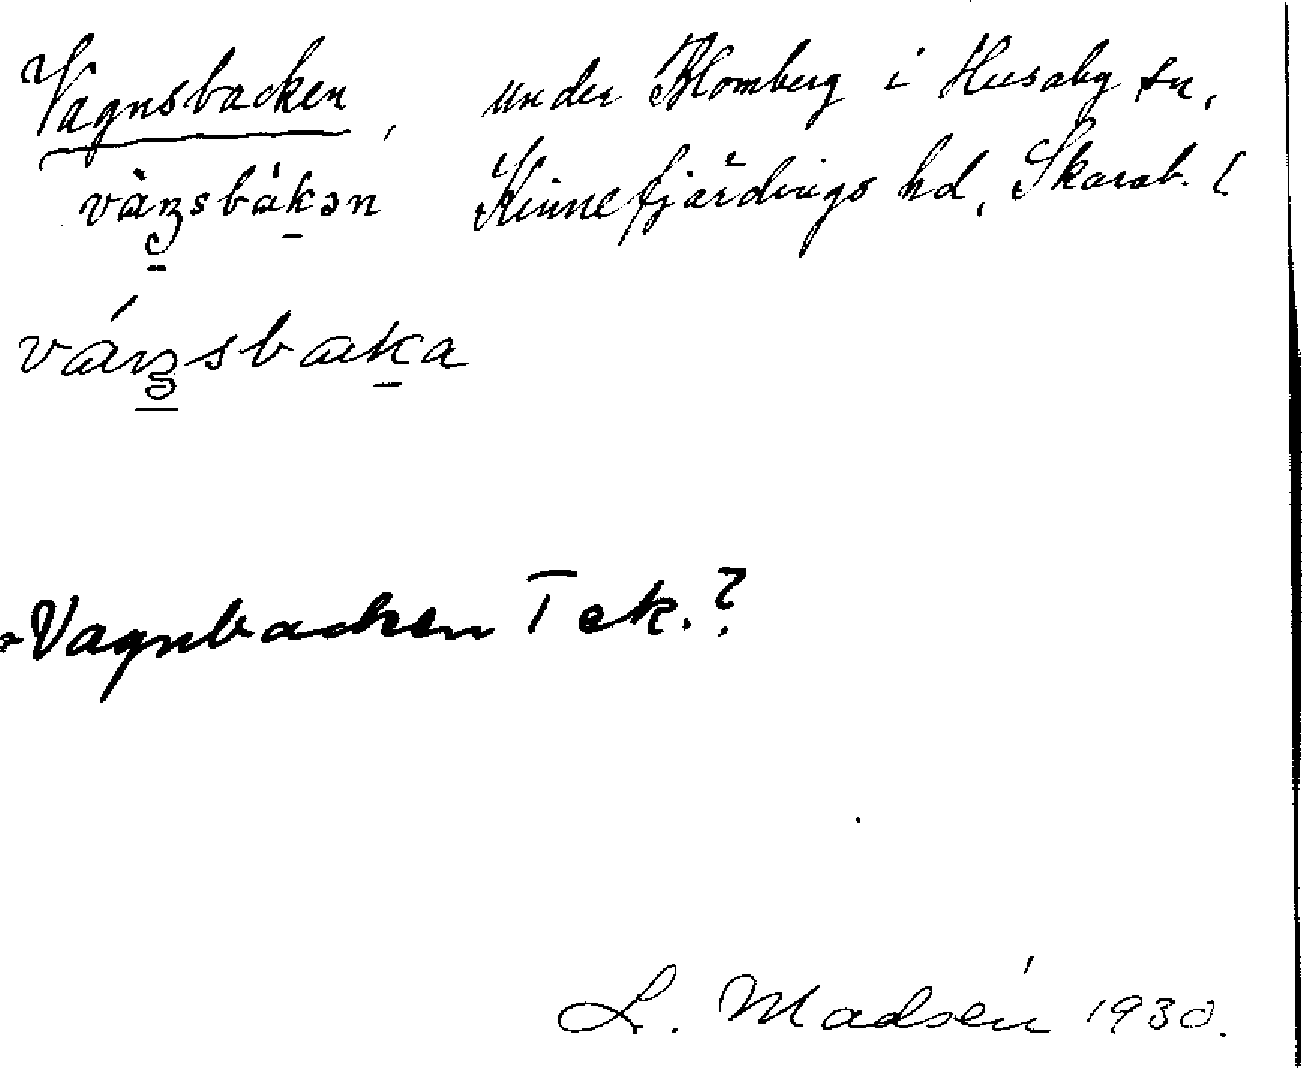 Vagnsbacken, under Blomberg i Husaby sn,
vàŋsbákən Kinnefjärdings hd, Skarab. l
váŋsbaka
Vagnbacken Tek.?
L. Madsén 1930.